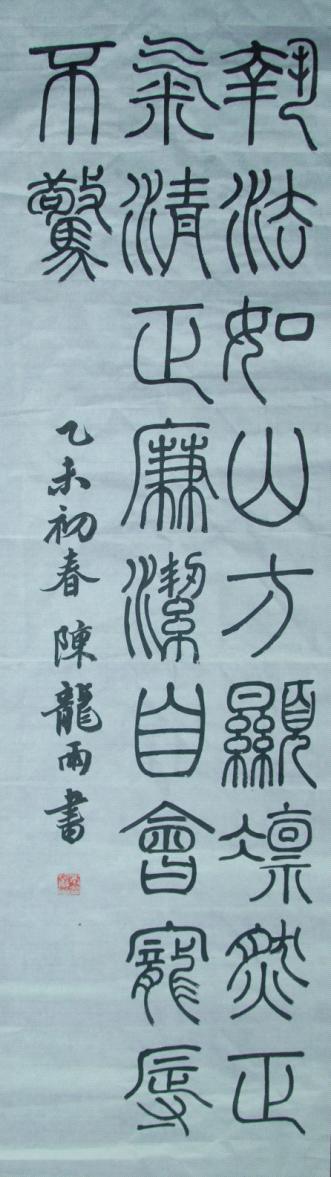 執法如山方顯凛然正
氣清正廉潔自會寵辱
不驚
乙未初春 陳龍雨書